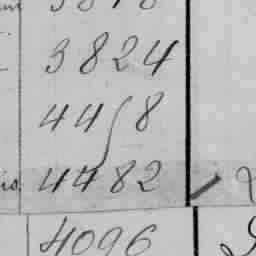 3824
4458
4482
4096